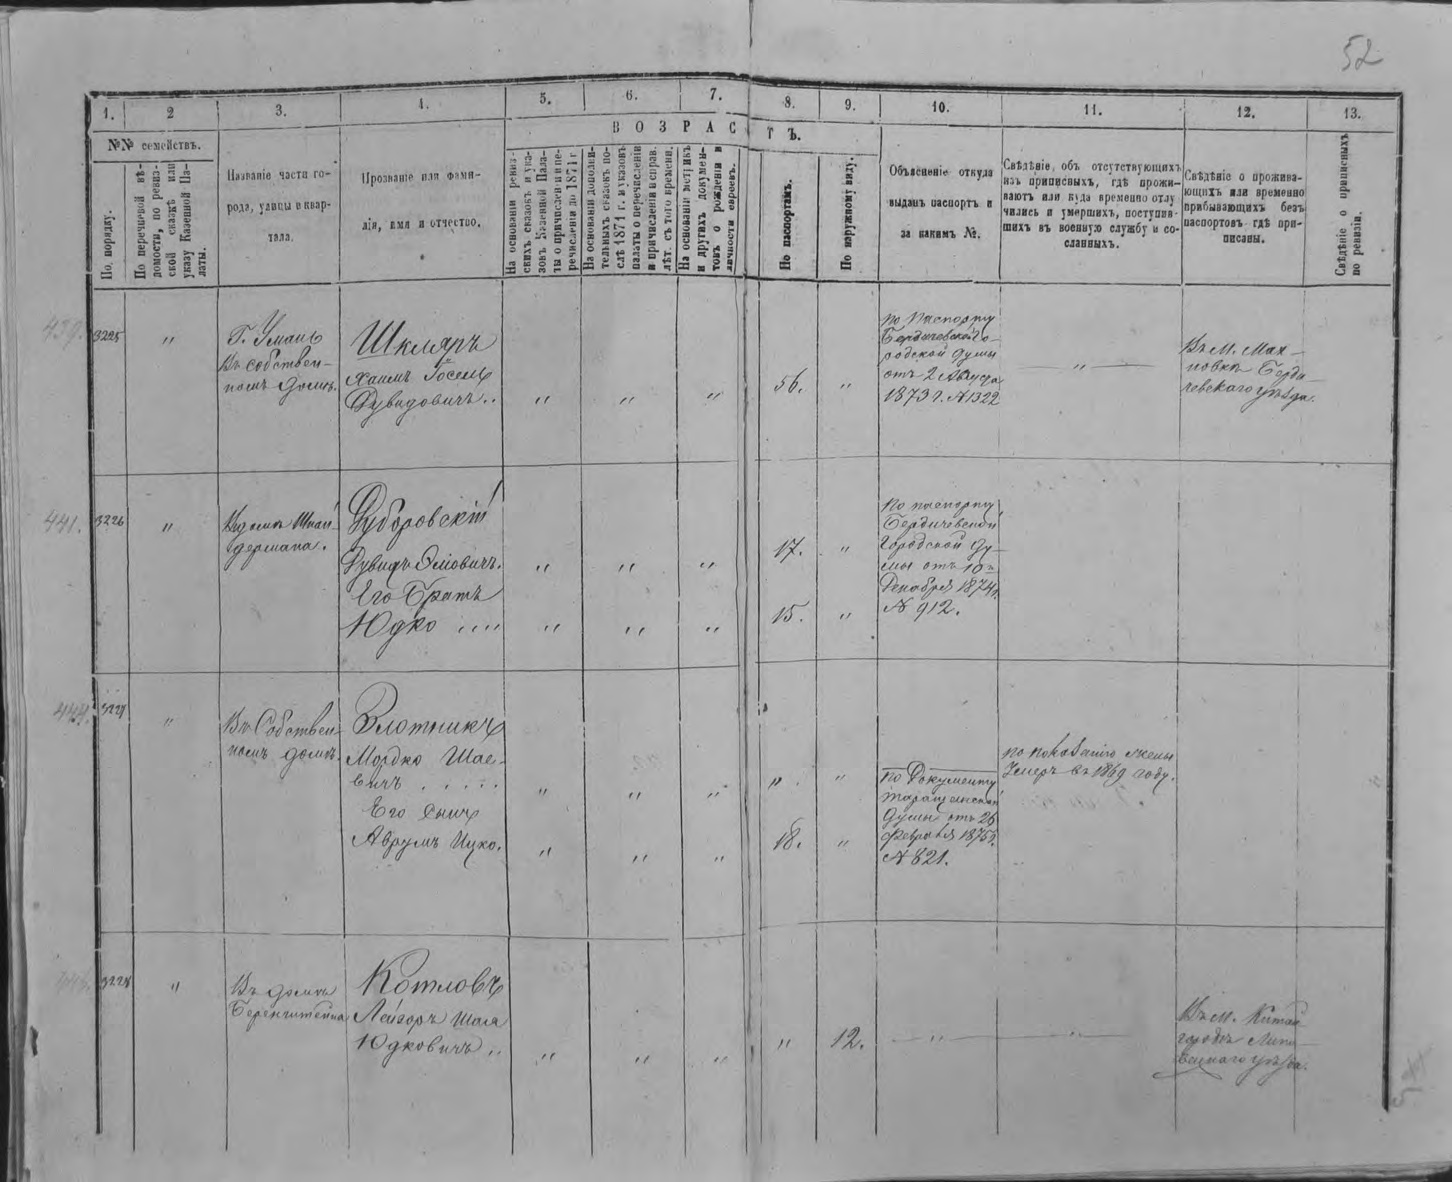 52
1. 2 3. 4. 5. 6. 7. 8. 9. 10. 11. 12. 13.
№№ семействъ.
По порядку.
По перечневой вѣ-
домости, по ревиз-
ской сказкѣ или
указу Казенной Па-
латы.
Названіе части го-
рода, улицы и квар-
тала.
Прозваніе или фами-
лія, имя и отчество.
ВОЗРАСТЪ.
На основаніи ревиз-
скихъ сказокъ и ука-
зовъ Казенной Пала-
ты о причисленіи и пе-
речисленіи до 1871 г.
На основаніи дополни-
тельныхъ сказокъ по-
слѣ 1871 г. и указовъ
палаты о перечисленіи
и причисленіи и исправ.
лѣт. съ того времени.
На основаніи метрикъ
и другихъ докумен-
товъ о рожденіи и
личности евреевъ.
По паспортамъ.
По наружному виду.
Объясненіе откуда
выданъ паспортъ и
за какимъ №.
Свѣдѣніе объ отсутствующихъ
изъ приписныхъ, гдѣ прожи-
ваютъ или куда временно отлу
чились и умершихъ, поступив-
шихъ въ военную службу и со-
сланныхъ.
Свѣдѣніе о прожива-
ющихъ или временно
прибывающихъ безъ
паспортовъ гдѣ при-
писаны.
Свѣдѣніе о приписныхъ
по ревизіи.
439.
3225
"
Г. Умань
Въ собствен-
номъ домѣ.
Шкляръ
Хаимъ Іосель
Дувидовичъ ..
" " "
56.
"
По паспорту
Бердичевской го-
родской думы
отъ 2 Августа
1873 г. № 1322
"
Въ м. Мах-
новкѣ Берди-
чевскаго уѣзда.
441.
3226
"
Въ домѣ Шнай-
дермана.
Дубровскій
Дувидъ
Его Братъ
Юдко ....
" " "
" " "
17.
15.
"
"
По паспорту
Бердичевской
Городской Ду-
мы отъ 10
Декабря 1874 г.
№ 912.
444.
3227
"
Въ Собствен-
номъ домѣ.
Злотникъ
Мордко Шае-
вичъ . . . . .
Его сынъ
Аврумъ Ицко.
" " "
" " "
18.
"
"
По Документу
Таращанской
Думы отъ 26
Февраля 1875 г.
№ 821.
По показанію жены
Умеръ въ 1869 году.
3228
"
Въ домѣ
Беренштейна
Котловъ
Лейзоръ Шая
Юдковичъ ..
" " "
"
12.
"
"
Въ м. Китай
городѣ Липо-
вецкаго уѣзда.